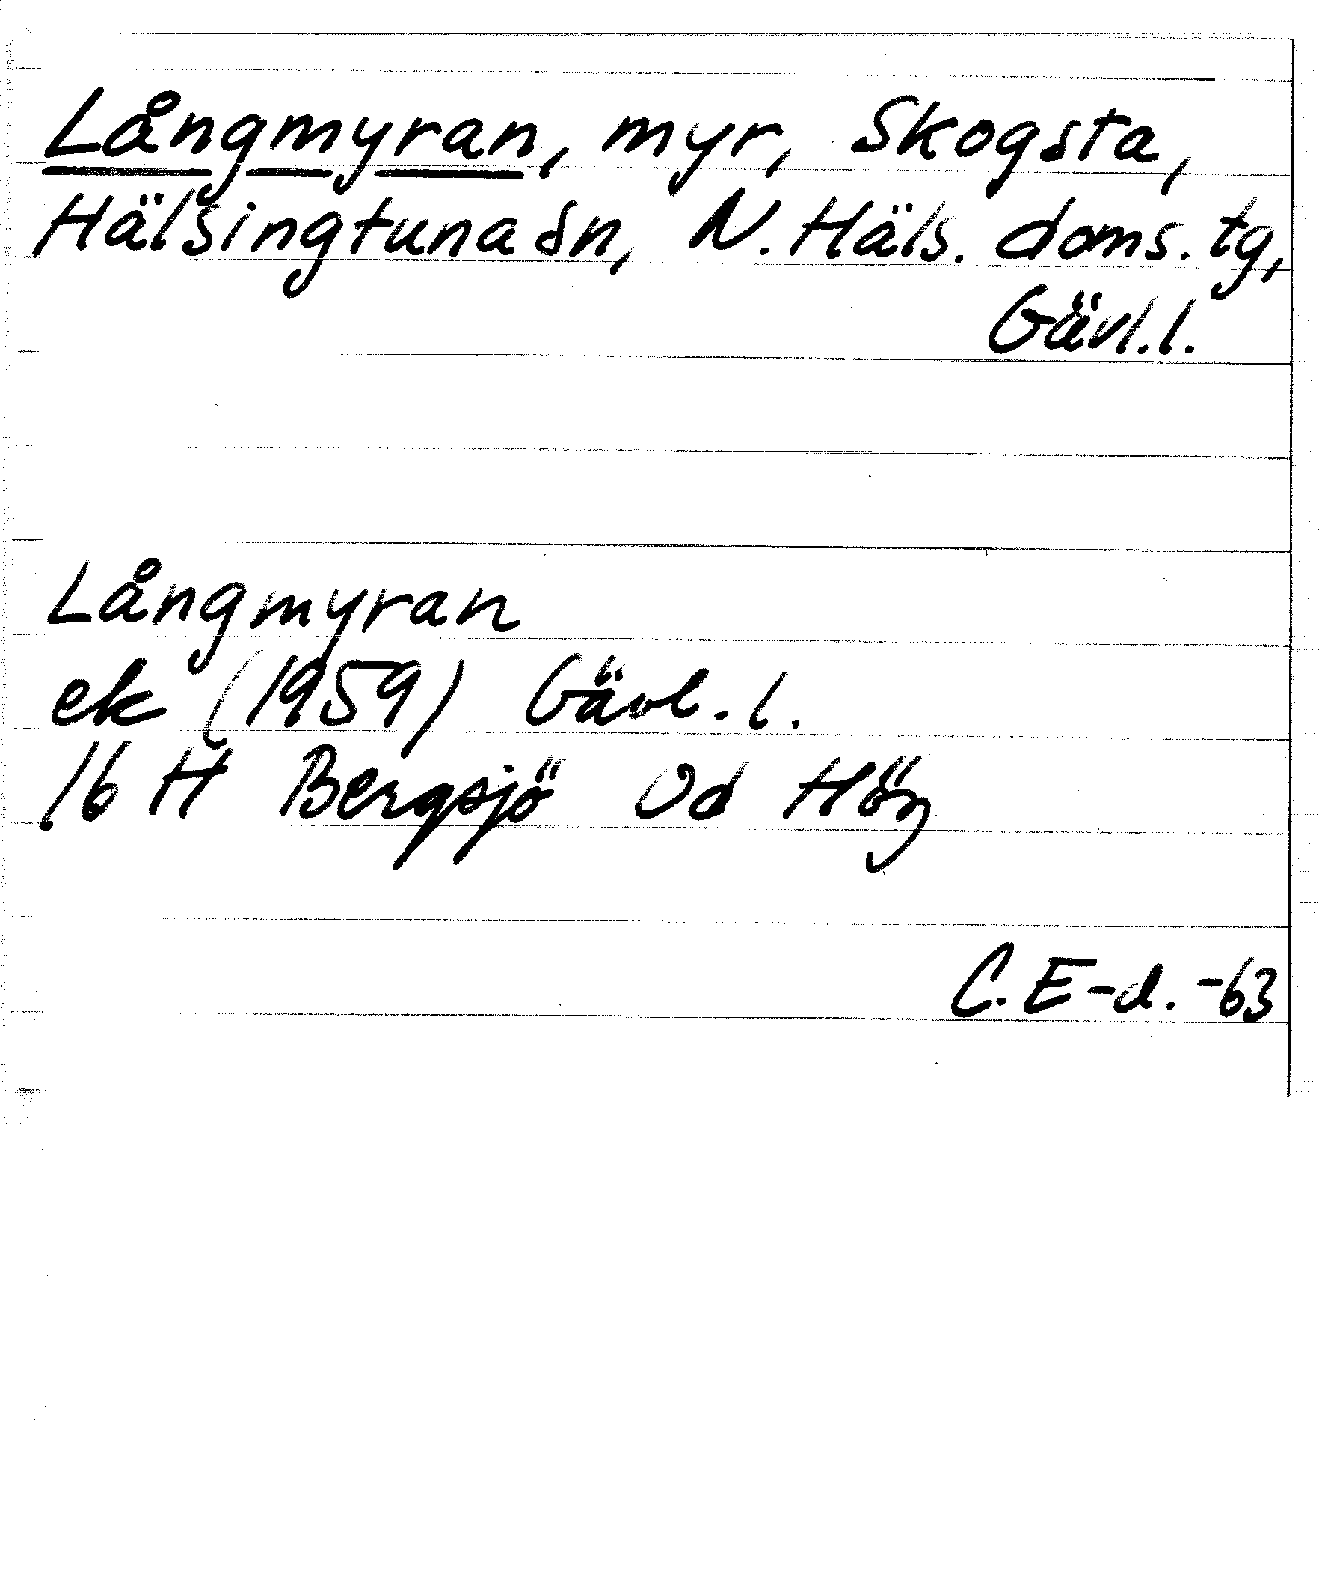 Långmyran, myr, Skogsta,
Hälsingtuna sn, N. Häls. doms. tg,
Gävl. l.
Långmyran
ek (1959) Gävl. l.
16 H Bergsjö Od Hög
C. E-d. -63